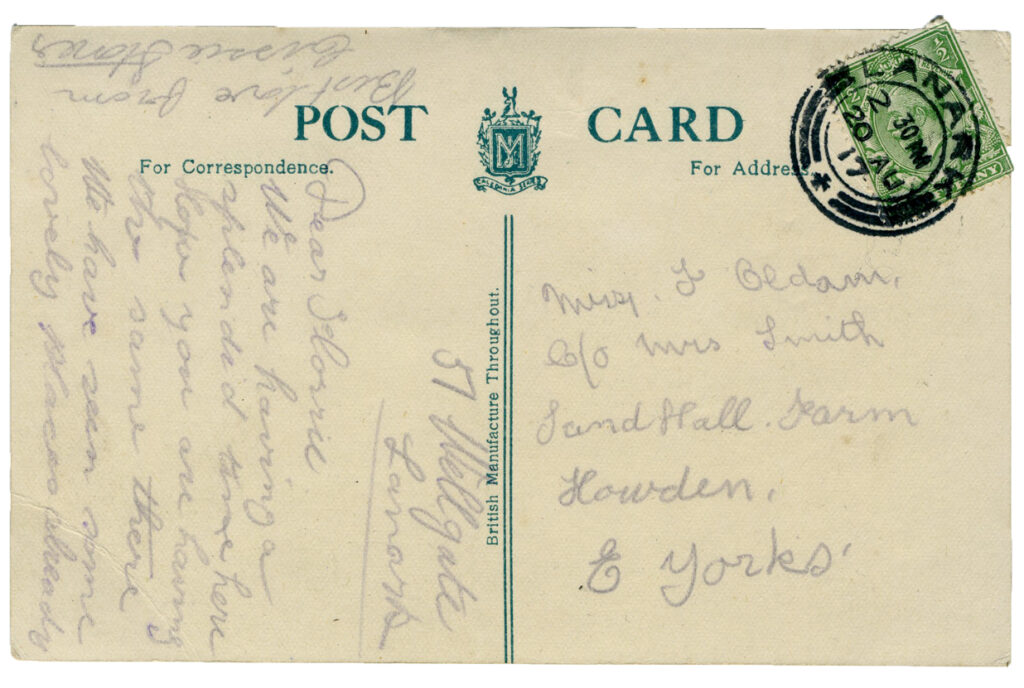 POST CARD
CALEDONIA SERIES
For Correspondence.
For Address.
British Manufacture Throughout.
LANARK
2 30 PM
20 AU
17
57 Wellgate
Lanark
Dear Florrie
We are having a
splendid time here
Hope you are having
the same there
We have seen some
lovely places already
Best love from
Cissie
Miss. F Oldam,
C/o Mrs Smith
Sand Hall. Farm
Howden,
E Yorks